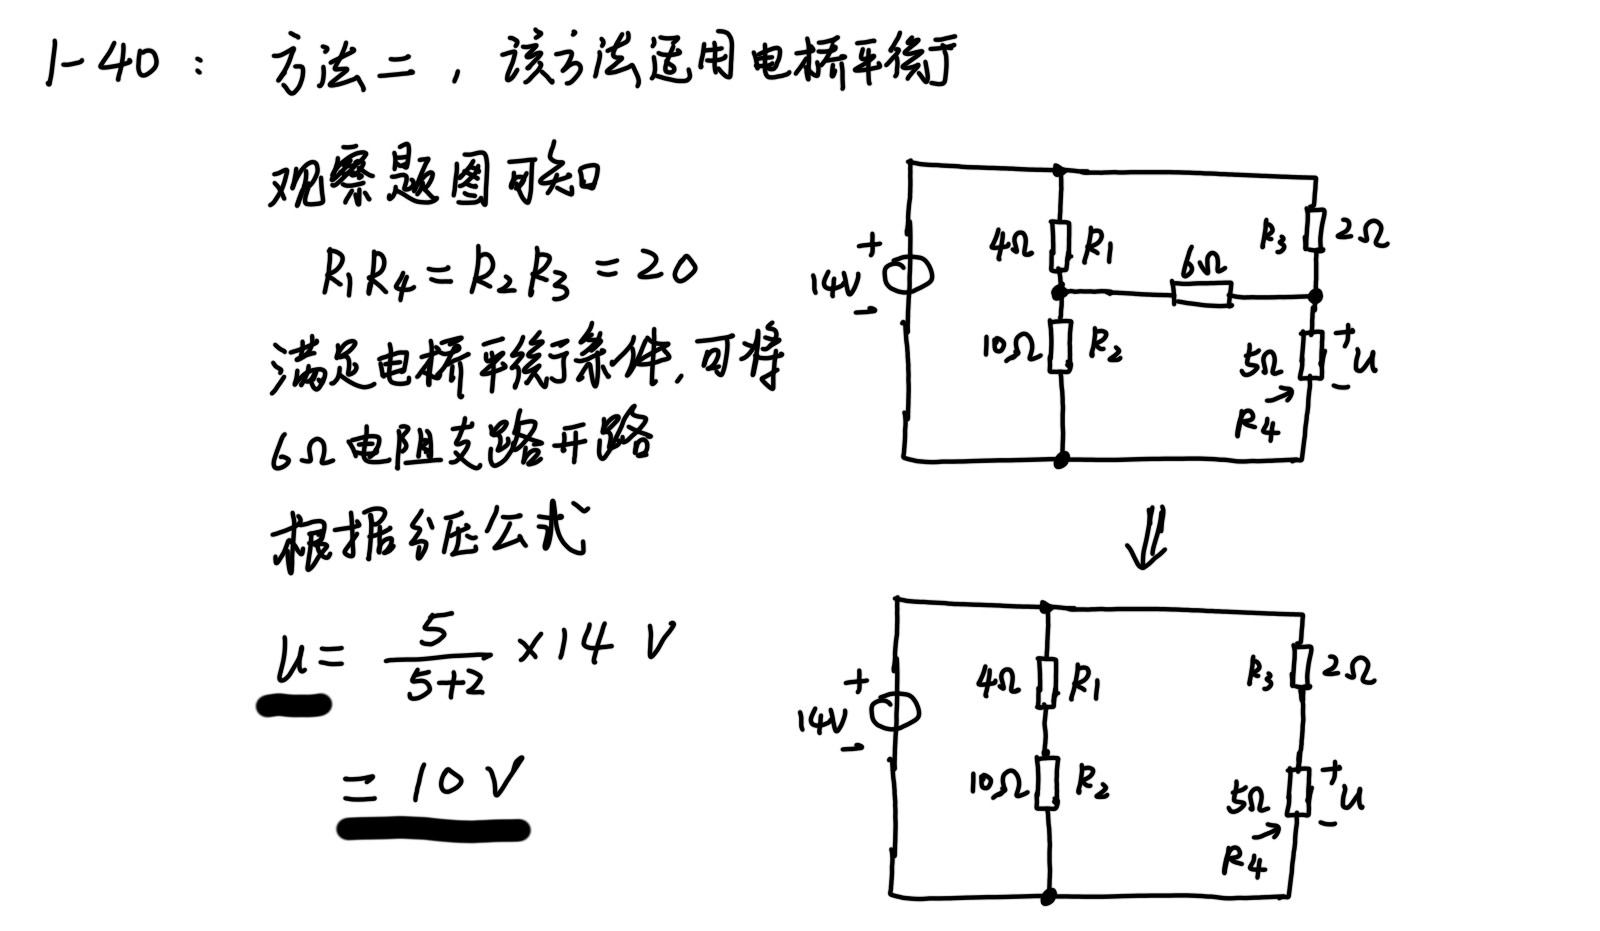 1-40： 方法二，该方法适用电桥平衡
观察题图可知
R₁R₄=R₂R₃=20
满足电桥平衡条件,可将
6Ω电阻支路开路
根据分压公式
u= 5/(5+2) ×14 V
=10V
4Ω R₁
R₃ 2Ω
6Ω
+
14V
-
10Ω R₂
5Ω
+
u
-
R₄
⇓
4Ω R₁
R₃ 2Ω
+
14V
-
10Ω R₂
5Ω
+
u
-
R₄